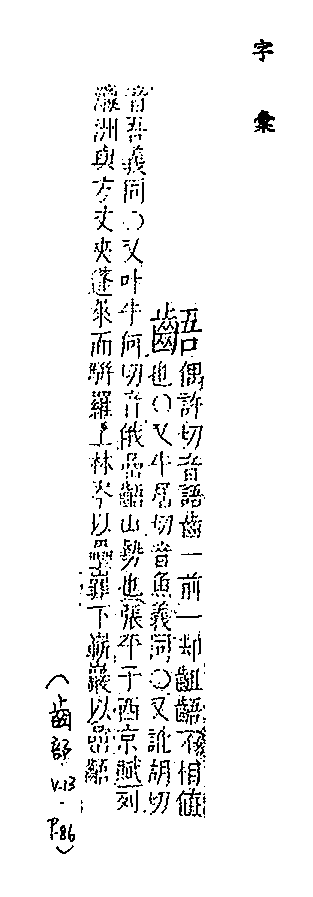 字彙
齬
偶許切音語齒一前一却齟齬不相值
也○又牛居切音魚義同○又訛胡切
音吾義同○又叶牛何切音俄嵒齬山勢也張平子西京賦列
瀛洲與方丈夾蓬萊而駢羅上林岑以壘嶵下嶄巖以嵒齬
(齒部 V.13 - P.86)